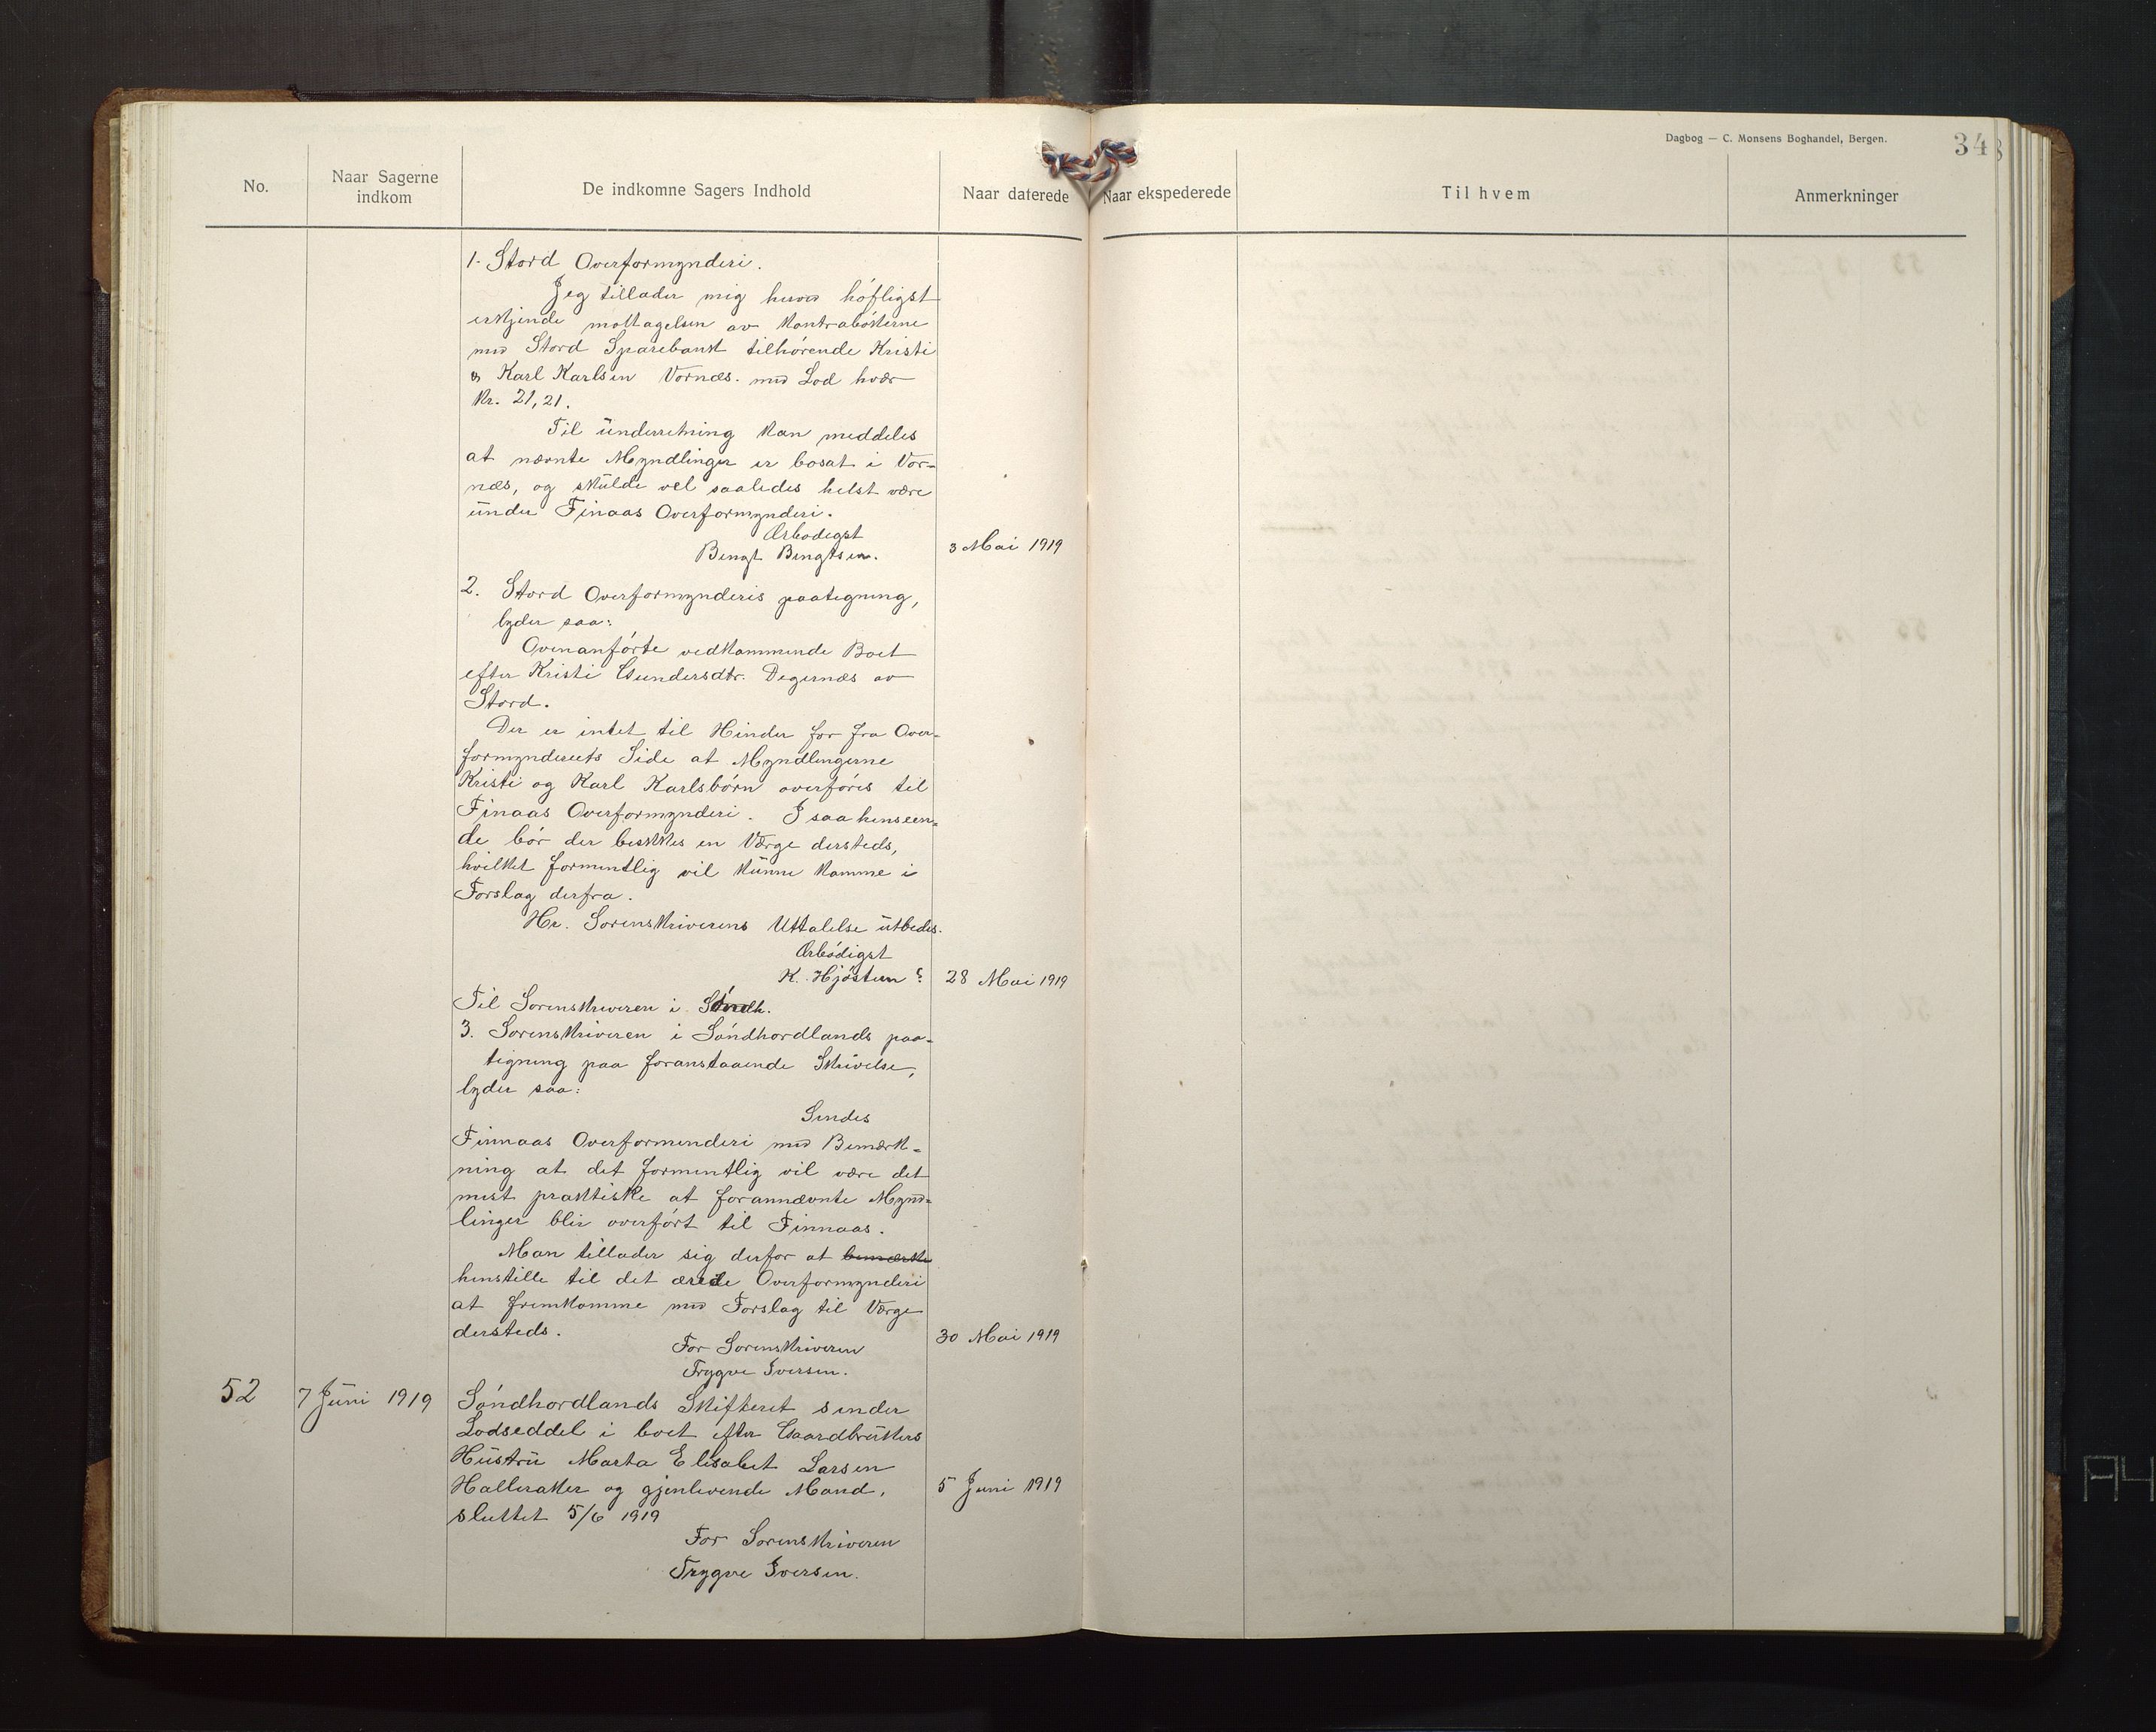 Dagbog — C. Monsens Boghandel, Bergen.
34
No.
Naar Sagerne
indkom
De indkomne Sagers Indhold
Naar daterede
Naar ekspederede
Til hvem
Anmerkninger
1. Stord Overformynderi.
Jeg tillader mig herved høfligst
erkjende mottagelsen av Kontrabøkerne
med Stord Sparebank tilhørende Kristi
og Karl Karlsen Vornæs. med Lod hver
Kr. 21,21.
Til underretning kan meddeles
at nævnte Myndlinger er bosat i Vor-
næs, og skulde vel saaledes helst være
under Finaas Overformynderi.
Ærbodigst
Bengt Bengtsen.
3 Mai 1919
2. Stord Overformynderis paategning,
lyder saa:
Ovenanførte vedkommende Boet
efter Kristi Gundersdtr. Degernæs av
Stord.
Der er intet til Hinder for fra Over-
formynderiets Side at Myndlingerne
Kristi og Karl Karlsbørn overføres til
Finaas Overformynderi. I saa henseen=
de bør der beskikkes en Værge dersteds,
hvilket formentlig vil kunne komme i
Forslag derfra.
Hr. Sorenskriverens Uttalelse utbedes.
Ærbødigst
K. Hjøstum ?
28 Mai 1919
Til Sorenskriveren i Søndh.
3. Sorenskriveren i Søndhordlands paa-
tegning paa foranstaaende Skrivelse,
lyder saa:
Sendes
Finnaas Overformenderi med Bemærk-
ning at det formentlig vil være det
mest praktiske at forannævnte Mynd=
linger blir overført til Finnaas.
Man tillader sig derfor at bemærke
henstille til det ærede Overformynderi
at fremkomme med Forslag til Værge
dersteds.
30 Mai 1919
For Sorenskriveren
Trygve Iversen.
52
7 Juni 1919
Søndhordlands Skifteret sender
Lodseddel i boet efter Gaardbrukers
Hustru Marta Elisabet Larsen
Halleraker og gjenlevende Mand,
5 Juni 1919
sluttet 5/6 1919
For Sorenskriveren
Trygve Iversen.